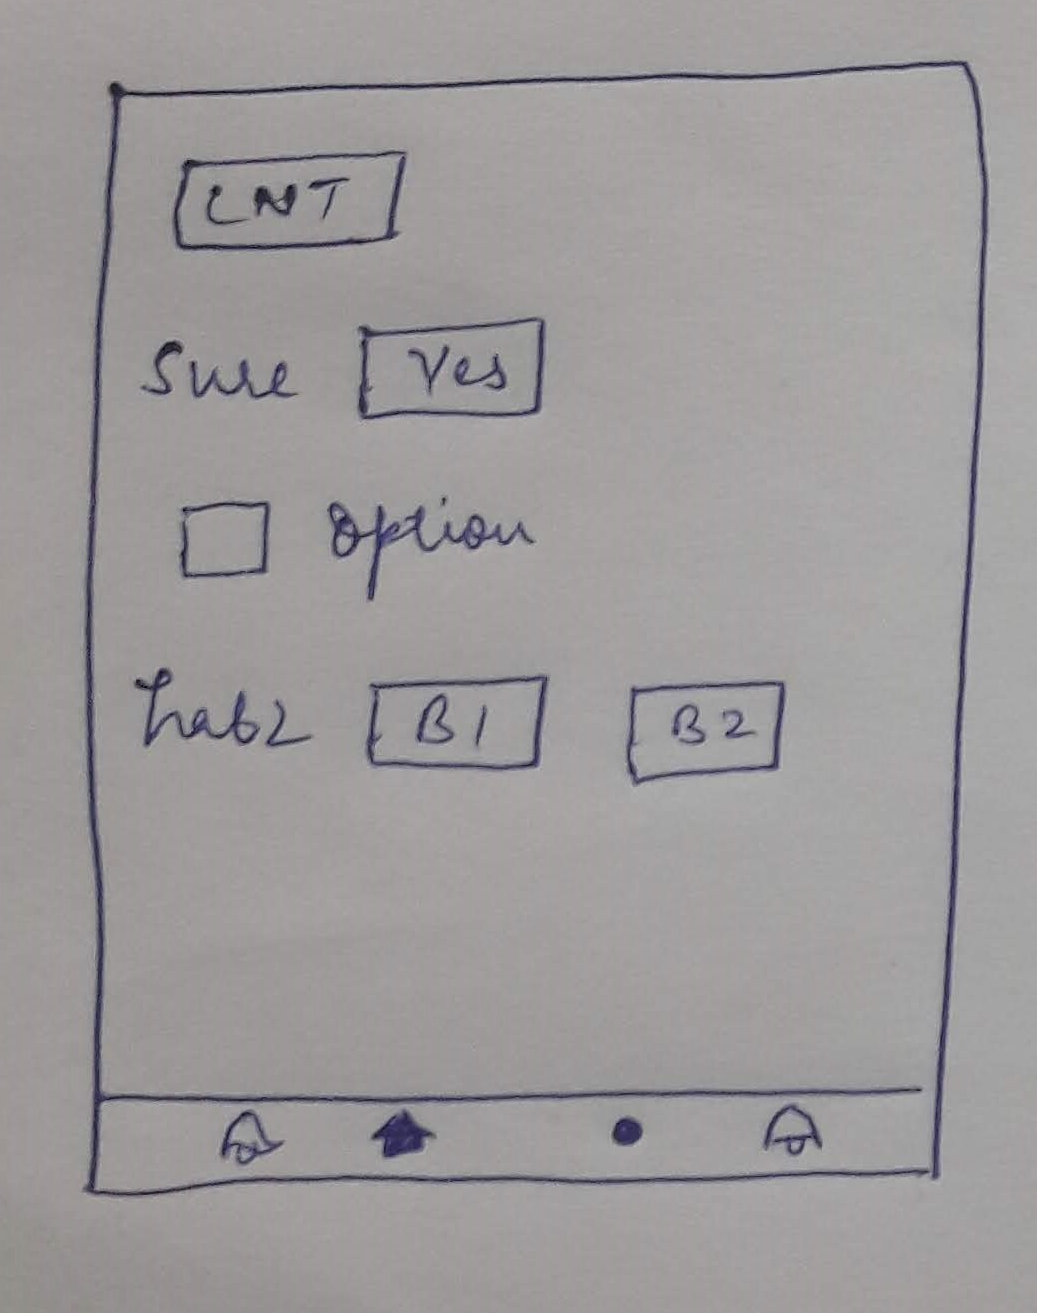 CNT
Sure Yes
Option
Lab2 B1 B2